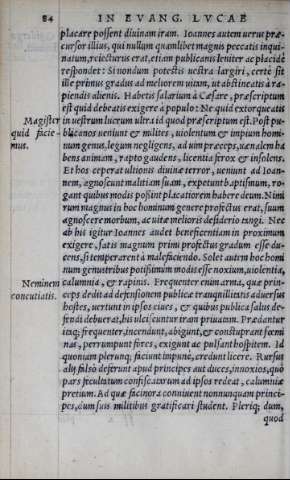 84 IN EVANG. LVCAE
placare possent diuinam iram. Ioannes autem uerus præ-
cursor illius, qui nullum quamlibet magnis peccatis inqui-
natum, reiecturus erat, etiam publicanis leniter ac placidè
respondet: Si nondum potestis uestra largiri, certè sit
ille primus gradus ad meliorem uitam, ut abstineatis à ra-
piendis alienis. Habetis salarium à Cæsare, præscriptum
est quid debeatis exigere à populo: Ne quid extorqueatis
Magister in uestrum lucrum ultra id quod præscriptum est. Post pu-
quid facie- blicanos ueniunt & milites, uiolentum & impium homi-
mus. num genus, legum negligens, ad uim præceps, uænalem ha
bens animam, rapto gaudens, licentia ferox & insolens.
Et hos ceperat ultionis diuinæ terror, ueniunt ad Ioan-
nem, agnoscunt malitiam suam, expetunt baptismum, ro-
gant quibus modis possint placatiorem habere deum. Nimi
rum magnus in hoc hominum genere profectus erat, suum
agnoscere morbum, ac uitæ melioris desiderio tangi. Nec
ab his igitur Ioannes audet beneficentiam in proximum
exigere, satis magnum primi profectus gradum esse du-
cens, si temperarent à maleficiendo. Solet autem hoc homi
num genus tribus potissimum modis esse noxium, uiolentia,
Neminem calumnia, & rapinis. Frequenter enim arma, quæ prin-
concutiatis. ceps dedit ad defensionem publicæ tranquillitatis aduersus
hostes, uertunt in ipsos ciues, & quibus publica salus de-
fendi debuerat, his ulciscuntur iram priuatam. Prædantur
itaq; frequenter, incendunt, abigunt, & constuprant fœmi
nas, perrumpunt fores, exigunt ac pulsant hospitem. Id
quoniam plerunq; faciunt impunè, credunt licere. Rursus
aliq falsò deferunt apud principes aut duces, innoxios, quò
pars facultatum confiscatarum ad ipsos redeat, calumniæ
precium. Ad quæ facinora conniuent nonnunquam princi-
pes, dum suis militibus gratificari student. Pleriq; dum,
quod